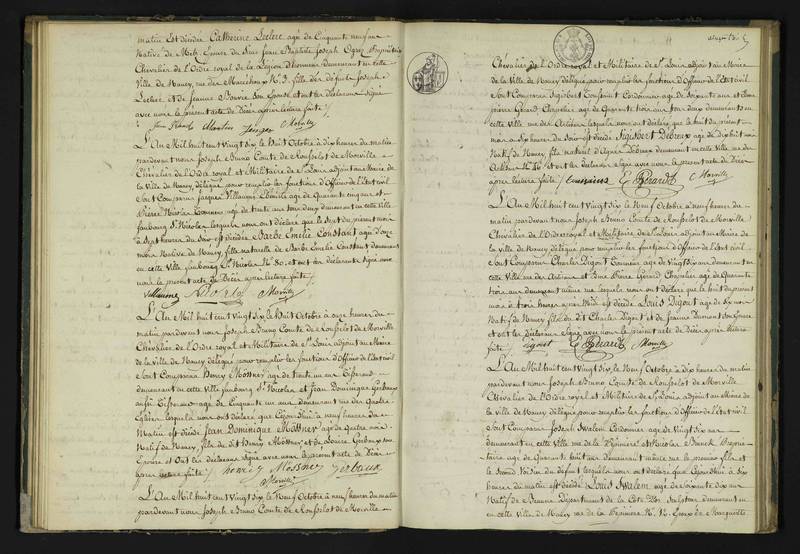 matin est décédée Catherine Leclerc agée de Cinquante neuf ans
Native de Metz, Epouse du Sieur Jean Baptiste Joseph Propriétaire
Chevalier de l'Ordre royal de la Légion d'honneur demeurant en cette
Ville de Nancy, rue des Maréchaux N.° 3. fille des défunts Joseph
Leclerc et de Jeanne son Epouse, et ont les déclarans signé
avec nous le présent acte de Décès après lecture faite /.
Morville
L'An Mil huit cent Vingt six le Huit Octobre à dix heures du matin
pardevant nous Joseph Bruno Comte de Rousselot de Morville
Chevalier de l'Ordre royal et Militaire de St. Louis adjoint au Maire de
la Ville de Nancy délégué pour remplir les fonctions d'Officier de l'Etat civil
Sont Comparus Jacques Villaume agé de Quarante cinq ans et
Pierre Nicolas agé de trente ans tous deux demeurant en cette Ville
faubourg St. Nicolas lesquels nous ont déclaré que le Sept du présent mois
à Sept heures du Soir est décédée Barbe Emélie Constant agée d'onze
mois Native de Nancy, fille naturelle de Barbe Emélie Constant demeurant
en cette Ville faubourg St. Nicolas N.° 80. et ont les déclarans signé avec
nous le présent acte de Décès après lecture faite /.
Villaume Morville
L'An Mil huit cent Vingt six le Huit Octobre à onze heures du
matin pardevant nous Joseph Bruno Comte de Rousselot de Morville
Chevalier de l'Ordre royal et Militaire de St. Louis adjoint au Maire
de la Ville de Nancy délégué pour remplir les fonctions d'Officier de l'Etat civil
Sont Comparus Henry Mossner agé de trente un ans Tisserand
demeurant en cette Ville faubourg St. Nicolas et Jean Dominique Gerbaux
aussi Tisserand agé de Cinquante un ans demeurant rue des Quatre
Eglises lesquels nous ont déclaré que Cejourd'hui à neuf heures du
Matin est décédé Jean Dominique Mossner agé de quatre mois
Natif de Nancy, fils du dit Henry Mossner et de Louise Gerbaux son
Epouse et Ont les déclarans signé avec nous le présent acte de Décès
après lecture faite / henri Mossner Jerbaux
Morville
L'An Mil huit cent Vingt six le Neuf Octobre à neuf heures du matin
pardevant nous Joseph Bruno Comte de Rousselot de Morville
Chevalier de l'Ordre royal et Militaire de St. Louis adjoint au Maire
de la Ville de Nancy délégué pour remplir les fonctions d'Officier de l'Etat civil
Sont Comparus Sigisbert Toussaint Cordonnier agé de Soixante ans et
pierre Gérard Chapelier agé de Quarante trois ans tous deux demeurant en
cette Ville rue des Artisans lesquels nous ont déclaré que le huit du présent
mois à Six heures du Soir est décédé Sigisbert Debreux agé de dix huit mois
Natif de Nancy, fils naturel d'Agnès Debreux demeurant en cette Ville rue des
Artisans et ont les déclarans signé avec nous le présent acte de Décès
après lecture faite / toussains Gérard Morville
L'An Mil huit cent Vingt six le Neuf Octobre à neuf heures du
matin pardevant nous Joseph Bruno Comte de Rousselot de Morville
Chevalier de l'Ordre royal et Militaire de St. Louis adjoint au Maire de
la ville de Nancy délégué pour remplir les fonctions d'Officier de l'Etat civil
Sont Comparus Charles Digout agé de Vingt six ans demeurant en
cette Ville rue des Artisans et Pierre Gérard Chapelier agé de Quarante
trois ans demeurant même rue lesquels nous ont déclaré que le huit du présent
mois à trois heures après Midi est décédé Louis Digout agé de six mois
Natif de Nancy, fils du dit Charles Digout et de Jeanne son Epouse
et ont les déclarans signé avec nous le présent acte de Décès après lecture
faite /. Gérard Morville
L'An Mil huit cent Vingt six, le Neuf Octobre à dix heures du matin
pardevant nous Joseph Bruno Comte de Rousselot de Morville
Chevalier de l'Ordre royal et Militaire de St. Louis adjoint au Maire de
la Ville de Nancy délégué pour remplir les fonctions d'Officier de l'Etat civil
Sont Comparus Joseph Cordonnier agé de Vingt six ans
demeurant en cette Ville rue de la Pépinière et Nicolas
agé de Quarante huit ans demeurant même rue le premier fils et
le second Voisin du défunt lesquels nous ont déclaré que Cejourd'hui à dix
heures du matin est décédé Louis agé de soixante dix ans
Natif de Beaune Département de la Côte d'Or, Sculpteur demeurant en
en cette Ville de Nancy rue de la Pépinière N.° Epoux de Marguerite